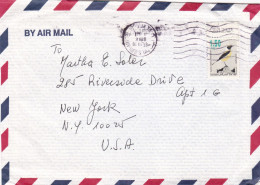 BY AIR MAIL
To
Martha E.
285 Riverside Drive
Apt 1G
New York
N.Y. 10025
U.S.A